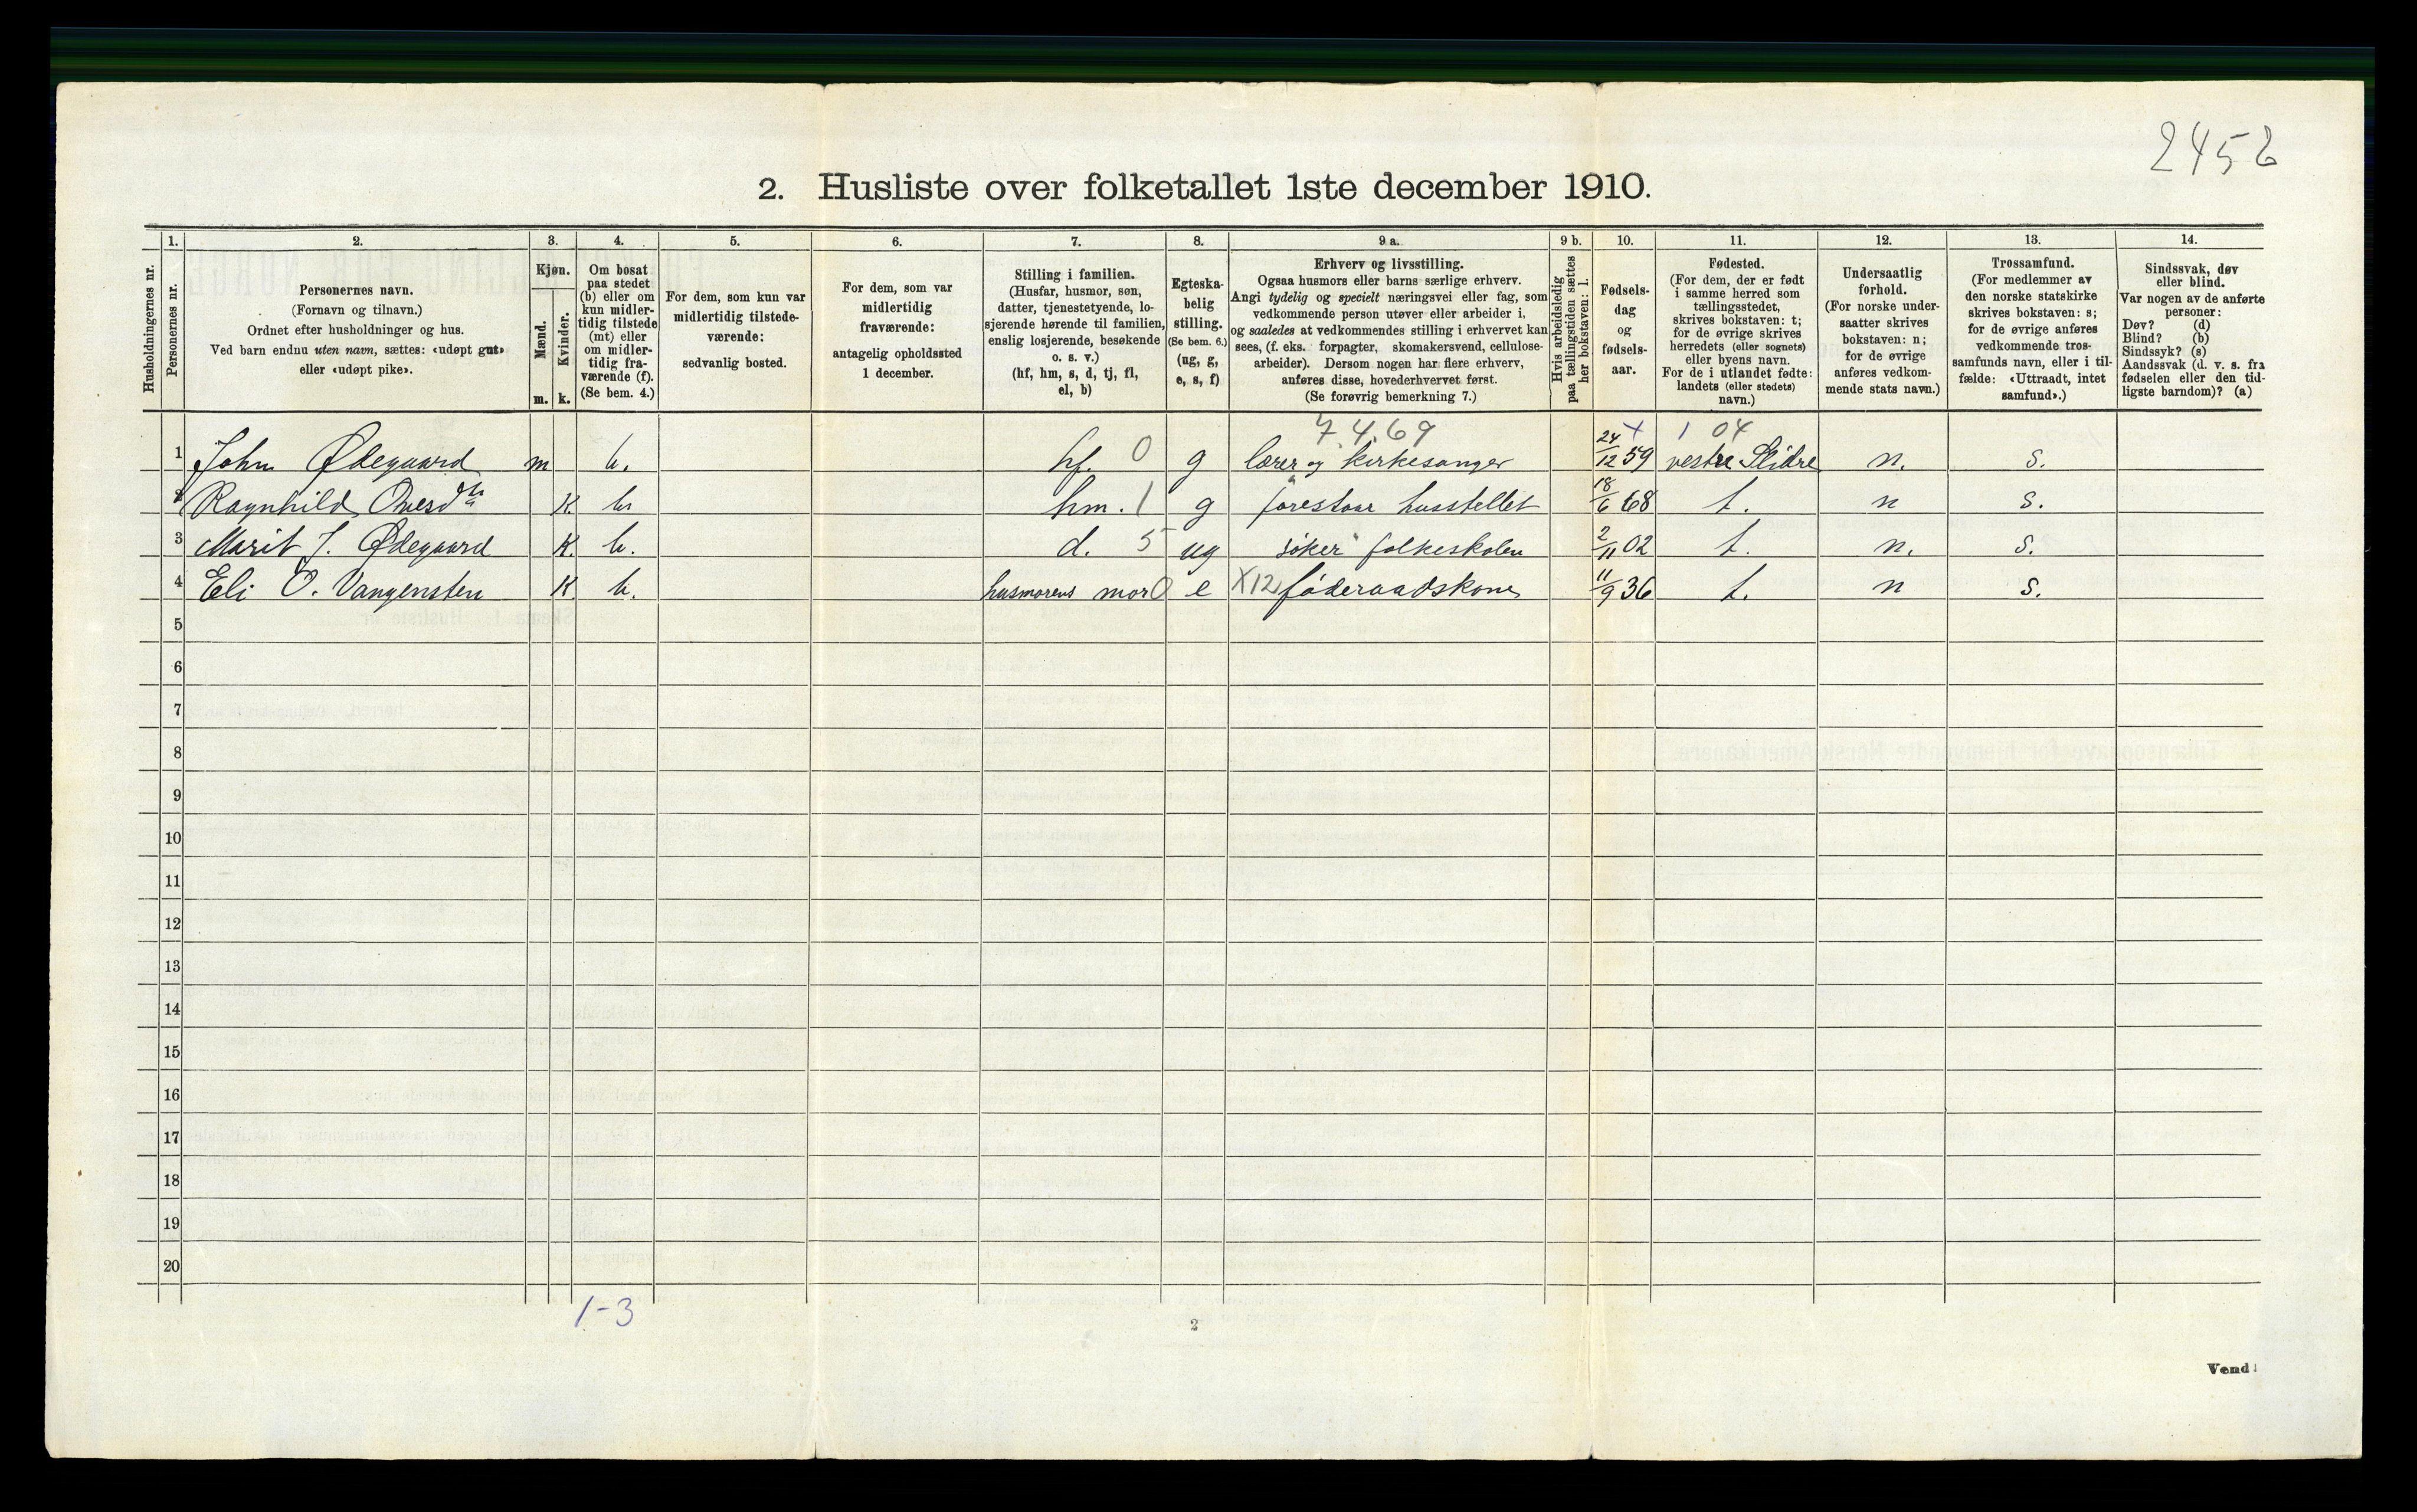 2458
2. Husliste over folketallet 1ste december 1910.
Husholdningernes nr.
1. Personernes nr.
2. Personernes navn.
(Fornavn og tilnavn.)
Ordnet efter husholdninger og hus.
Ved barn endnu uten navn, sættes: «udøpt gut»
eller «udøpt pike».
3. Kjøn.
Mænd. Kvinder.
m. k.
4. Om bosat
paa stedet
(b) eller om
kun midler-
tidig tilstede
(mt) eller
om midler-
tidig fra-
værende (f).
(Se bem. 4.)
5. For dem, som kun var
midlertidig tilstede-
værende:
sedvanlig bosted.
6. For dem, som var
midlertidig
fraværende:
antagelig opholdssted
1 december.
7. Stilling i familien.
(Husfar, husmor, søn,
datter, tjenestetyende, lo-
sjerende hørende til familien,
enslig losjerende, besøkende
o. s. v.)
(hf, hm, s, d, tj, fl,
el, b)
8. Egteska-
belig
stilling.
(Se bem. 6.)
(ug, g,
e, s, f)
9 a. Erhverv og livsstilling.
Ogsaa husmors eller barns særlige erhverv.
Angi tydelig og specielt næringsvei eller fag, som
vedkommende person utøver eller arbeider i,
og saaledes at vedkommendes stilling i erhvervet kan
sees, (f. eks. forpagter, skomakersvend, cellulose-
arbeider). Dersom nogen har flere erhverv,
anføres disse, hovederhvervet først.
(Se forøvrig bemerkning 7.)
9 b. Hvis arbeidsledig
paa tællingstiden sættes
her bokstaven: l.
10. Fødsels-
dag
og
fødsels-
aar.
11. Fødested.
(For dem, der er født
i samme herred som
tællingsstedet,
skrives bokstaven: t;
for de øvrige skrives
herredets (eller sognets)
eller byens navn.
For de i utlandet fødte:
landets (eller stedets)
navn.)
12. Undersaatlig
forhold.
(For norske under-
saatter skrives
bokstaven: n;
for de øvrige
anføres vedkom-
mende stats navn.)
13. Trossamfund.
(For medlemmer av
den norske statskirke
skrives bokstaven: s;
for de øvrige anføres
vedkommende tros-
samfunds navn, eller i til-
fælde: «Uttraadt, intet
samfund».)
14. Sindssvak, døv
eller blind.
Var nogen av de anførte
personer:
Døv? (d)
Blind? (b)
Sindssyk? (s)
Aandssvak (d. v. s. fra
fødselen eller den tid-
ligste barndom)? (a)
7.4.69 x 1 04
1 John Ødegaard m b. hf. 0 g lærer og kirkesanger 24/12 59 vestre Slidre n. s.
2 Ragnhild Ovesdtr K b hm. 1 g forestaar husstellet 18/6 68 t. n s.
3 Marit J. Ødegaard K. b. d. 5 ug søker folkeskolen 2/11 02 t. n. s.
4 Eli O. Vangensten K b. husmorens mor 0 e X12 føderaadskone 11/9 36 t. n s.
5
6
7
8
9
10
11
12
13
14
15
16
17
18
19
20
1-3
2
Vend!